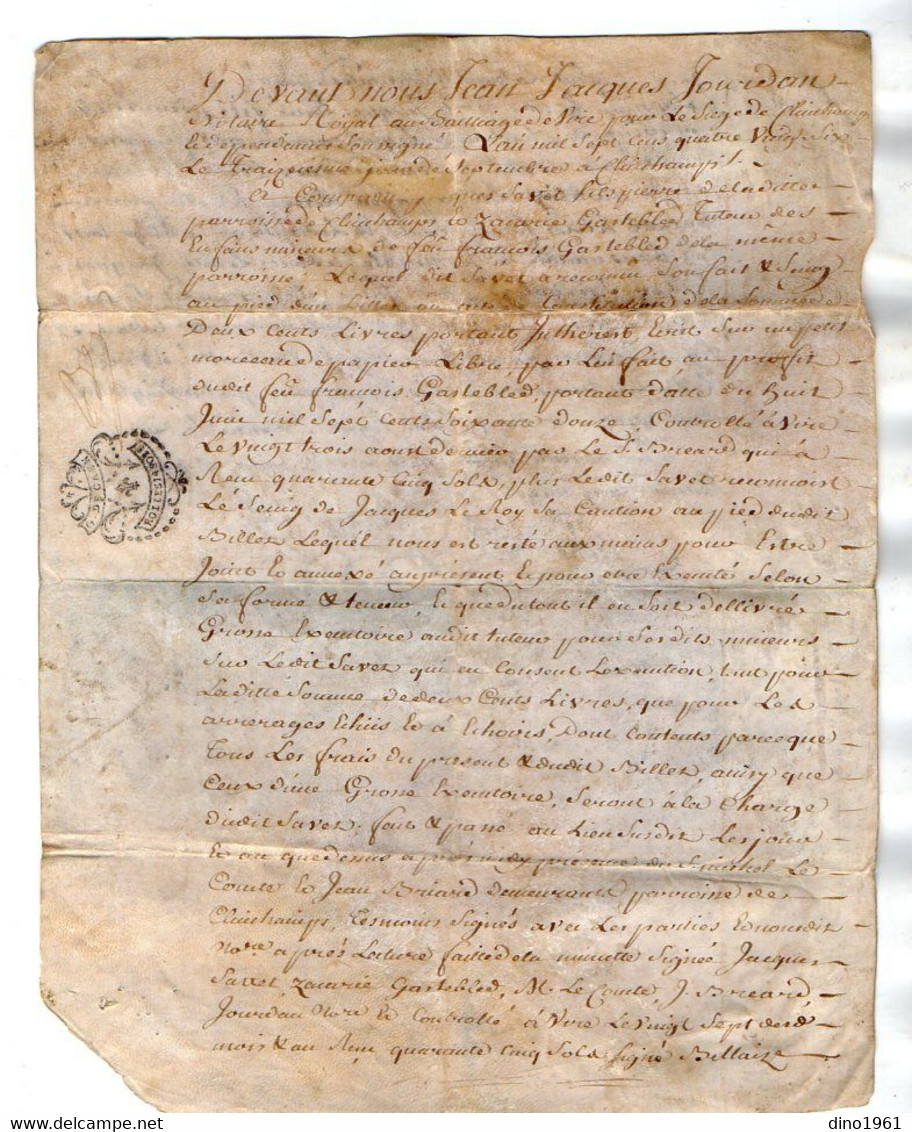 Devant nous Jean Jacques Jourdan
Notaire Royal au Bailliage de Vire pour Le Siege de Clinchamps
et dependances Souvigné L'an mil Sept Cens quatre Vingt Six
Le Traizieme jour de Septembre à Clinchamps
Est Comparu Jacques Savet fils pierre de la ditte
parroisse de Clinchamps et Zacarie Gastebled Tuteur des
Enfans mineurs de feû francois Gastebled de la même
parroisse Lequel dit Savet a reconnu Son fait & Seing
au pied d'un billet en de Constitution de la Somme de
Deux Cents Livres portant Inthorest, Ecrit Sur un petit
morceau de papier Libre par Luy fait au proffit
dudit feû francois Gastebled, portant datte du huit
Juin mil Sept Cents Soixante douze Controllé à Vire
Le vingt trois aoust dernier par Le S. Breard qui à
Recu quarante Cinq Sols, plus Ledit Savet reconnoist
Le Seing de Jacques Le Roy Sa Caution au pied dudit
Billet Lequel nous est resté aux mains pour Estre
Joint et annexé au présent Et pour etre Executé Selon
Sa forme & teneur, et que du tout il en Soit dellivré
Grosse Executoire audit tuteur pour Sesdits mineurs
Sur Ledit Savet qui en Consent L'execution, tant pour
La ditte Somme de deux Cents Livres, que pour Les
arrerages Echûs et à Echoirs, Dont Contents parce que
Tous Les frais du présent & dudit Billet, aussy que
Ceux d'une Grosse Executoire, Seront à la Charge
dudit Savet; fait & passé au Lieu Susdit Les jour
Et an que dessus après midy présence du S. michel Le
Comte et Jean Briard demeurants parroisse de
Clinchamps, Tesmoins Signés avec Les parties Et nousdit
No.re après Lecture faitte de la minutte Signée Jacques
Savet, Zacarie Gastebled, M. Le Comte, J. Breard
Jourdan No.re et Controllé à Vire Le vingt Sept desd.
mois & an Recu quarante Cinq Sols Signé Billaize